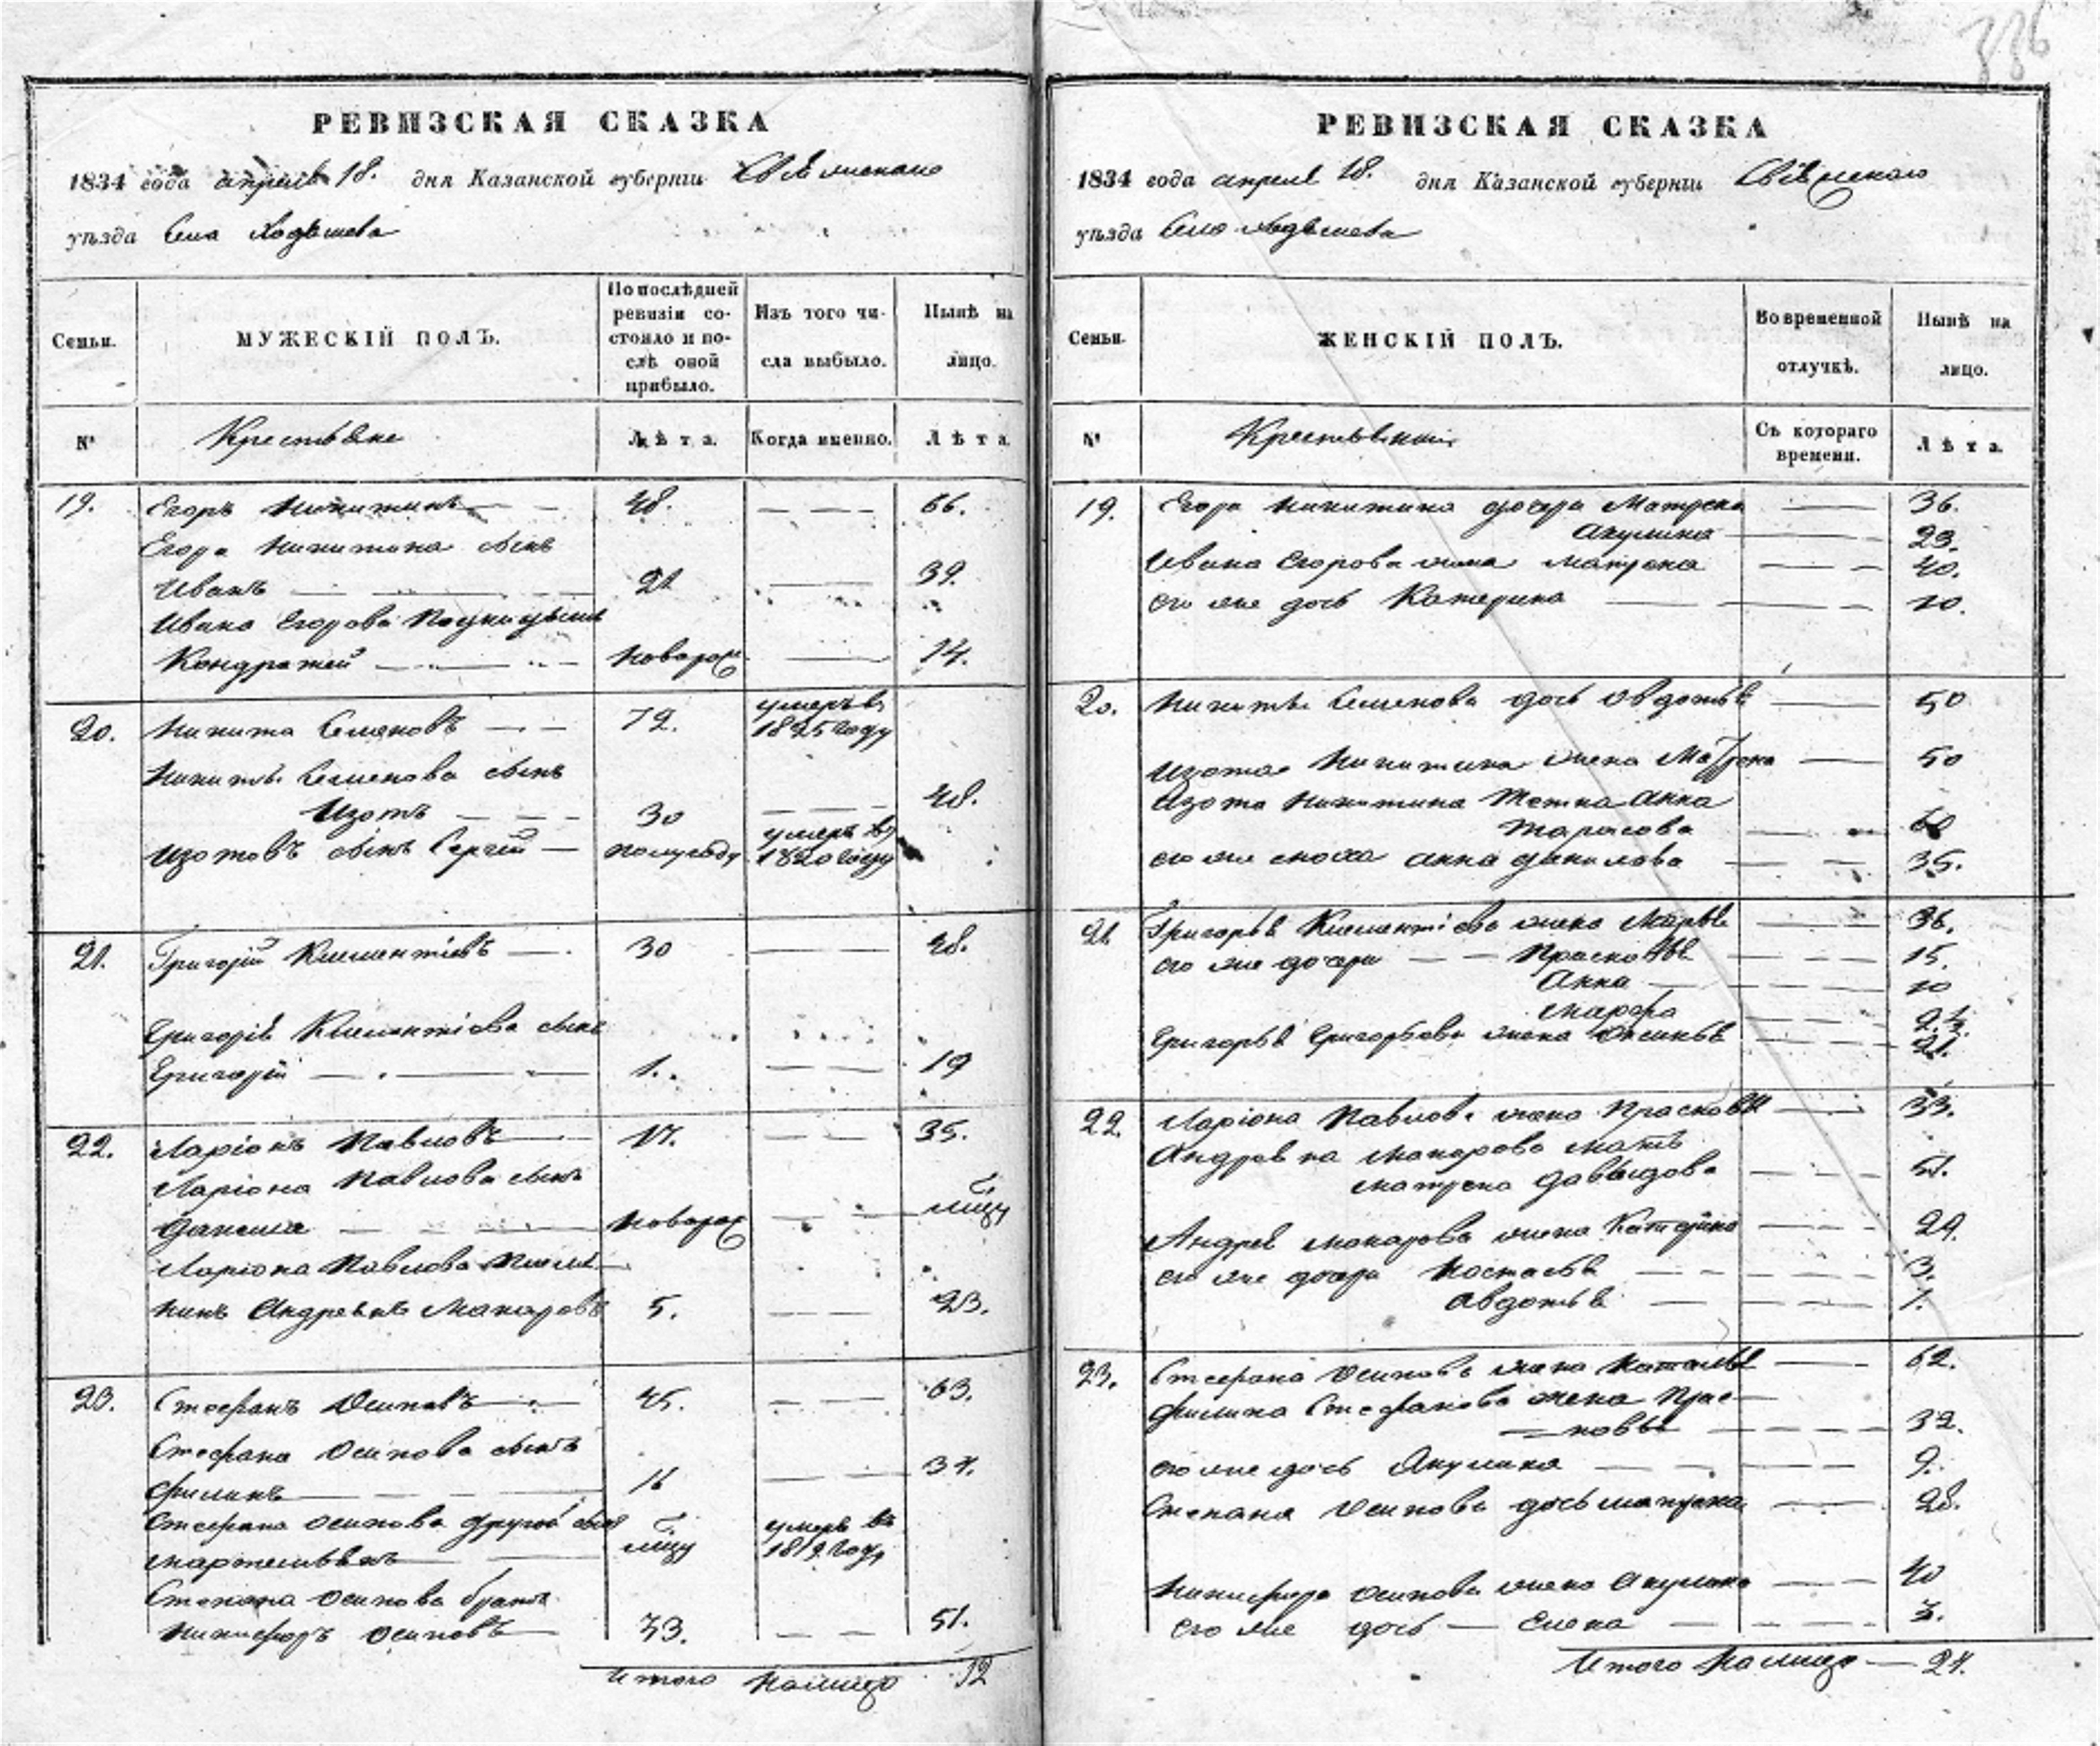 386
РЕВИЗСКАЯ СКАЗКА
1834 года апреля 18. дня Казанской губернии Свіяжскаго
уѣзда Села
Семьи.
МУЖЕСКІЙ ПОЛЪ.
По послѣдней ревизіи со-
стояло и по-
слѣ оной
прибыло.
Изъ того чи-
сла выбыло.
Нынѣ на
лицо.
№
Крестьяне
Лѣта.
Когда именно.
Лѣта
19. Егоръ Никитинъ 48. 66.
Егора Никитина сынъ
Иванъ 21 39.
Ивана Егорова
Кондратей новорож 14.
20. Никита Семеновъ 72. умеръ въ 1825 году
Никиты Семенова сынъ
Изотъ 30 48.
Изотовъ сынъ Сергей полугоду умеръ въ 1820 году
21. Григорій Климентіевъ 30 48.
Григорія Климентіева сынъ
Григорій 1. 19
22. Ларіонъ Павловъ 17. 35.
Ларіона Павлова сынъ
Данила новорож
Ларіона Павлова племян-
никъ Андреянъ Макаровъ 5. 23.
23. Стефанъ Осиповъ 45. 63.
Стефана Осипова сынъ
Филипъ 16 34.
Стефана Осипова другой сынъ
умеръ въ 1819 году
Степана Осипова братъ
Никифоръ Осиповъ 33. 51.
Итого налицо 12
РЕВИЗСКАЯ СКАЗКА
1834 года апреля 18. дня Казанской губернии Свіяжскаго
уѣзда Села
Семьи.
ЖЕНСКІЙ ПОЛЪ.
Во временной
отлучкѣ.
Нынѣ на
лицо.
№
Съ котораго
времени.
Лѣта.
19. Егора Никитина дочери Матрена 36.
Акулина 23.
Ивана Егорова жена Матрена 40.
его же дочь Катерина 10.
20. Никиты Семенова дочь Овдотья 50
Изота Никитина жена Матрона 50
Изота Никитина тетка Анна
Тарасова 60
его же сноха Анна Данилова 35.
21. Григорья Климентіева жена Марья 36.
его же дочери Прасковья 15.
Анна 10
Марфа 2 1/2.
Григорья Григорьева жена Аксинья 21.
22. Ларіона Павлова жена Прасковья 33.
Андреяна Макарова мать
Матрена Давыдова 51.
Андрея Макарова жена Катерина 24.
его же дочери Настасья 3.
Авдотья 1.
23. Стефана Осипова жена Наталья 62.
Филипа Стефанова жена Прас-
ковья 32.
его же дочь Акулина 9.
Степана Осипова дочь Матрена 28.
Никифора Осипова жена Акулина 40
его же дочь Елена 3.
Итого налицо 24.